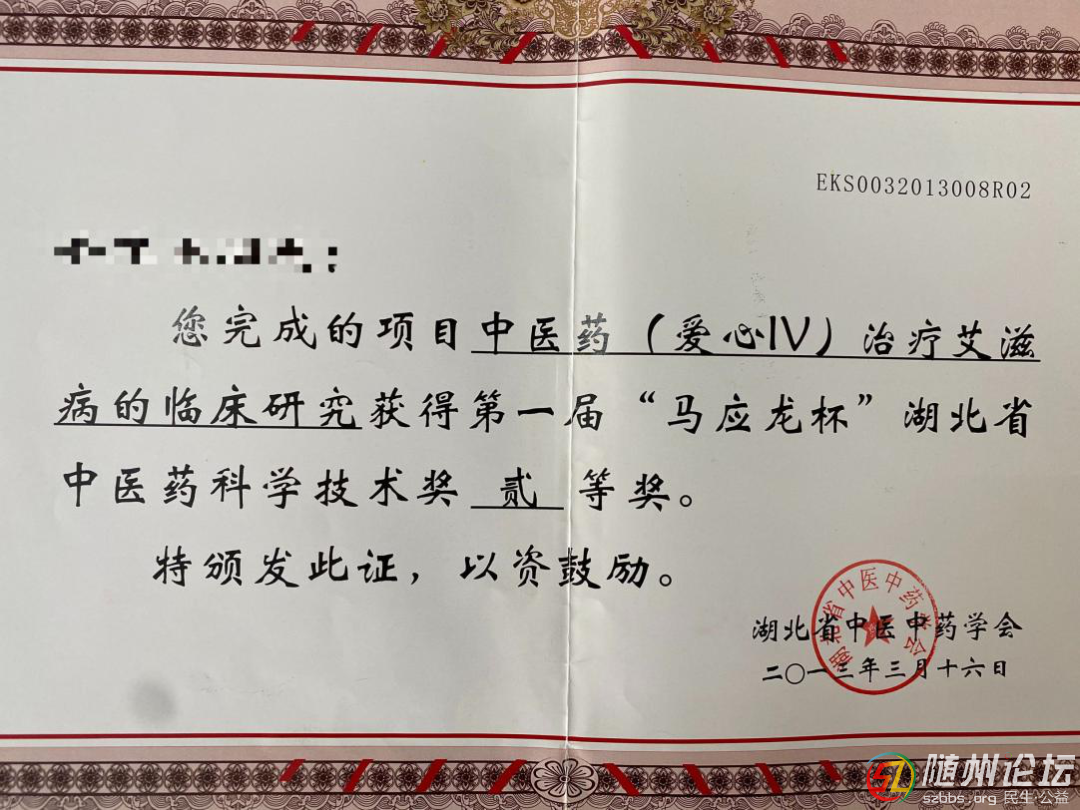 EKS0032013008R02
您完成的项目中医药（爱心IV）治疗艾滋
病的临床研究获得第一届“马应龙杯”湖北省
中医药科学技术奖 贰 等奖。
特颁发此证，以资鼓励。
湖北省中医中药学会
湖北省中医中药学会
二〇一三年三月十六日
随州论坛
szbbs.org 民生·公益